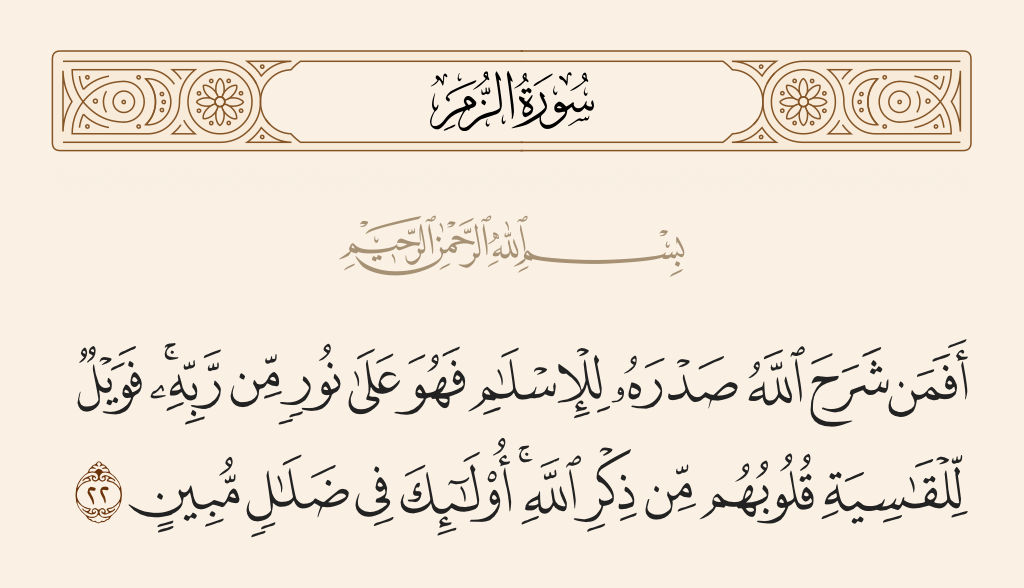 سُورَةُ الزُّمَرِ
بِسْمِ ٱللَّهِ ٱلرَّحْمَٰنِ ٱلرَّحِيمِ
أَفَمَن شَرَحَ ٱللَّهُ صَدْرَهُۥ لِلْإِسْلَٰمِ فَهُوَ عَلَىٰ نُورٍ مِّن رَّبِّهِۦ ۚ فَوَيْلٌ
لِّلْقَٰسِيَةِ قُلُوبُهُم مِّن ذِكْرِ ٱللَّهِ ۚ أُو۟لَٰٓئِكَ فِى ضَلَٰلٍ مُّبِينٍ ٢٢